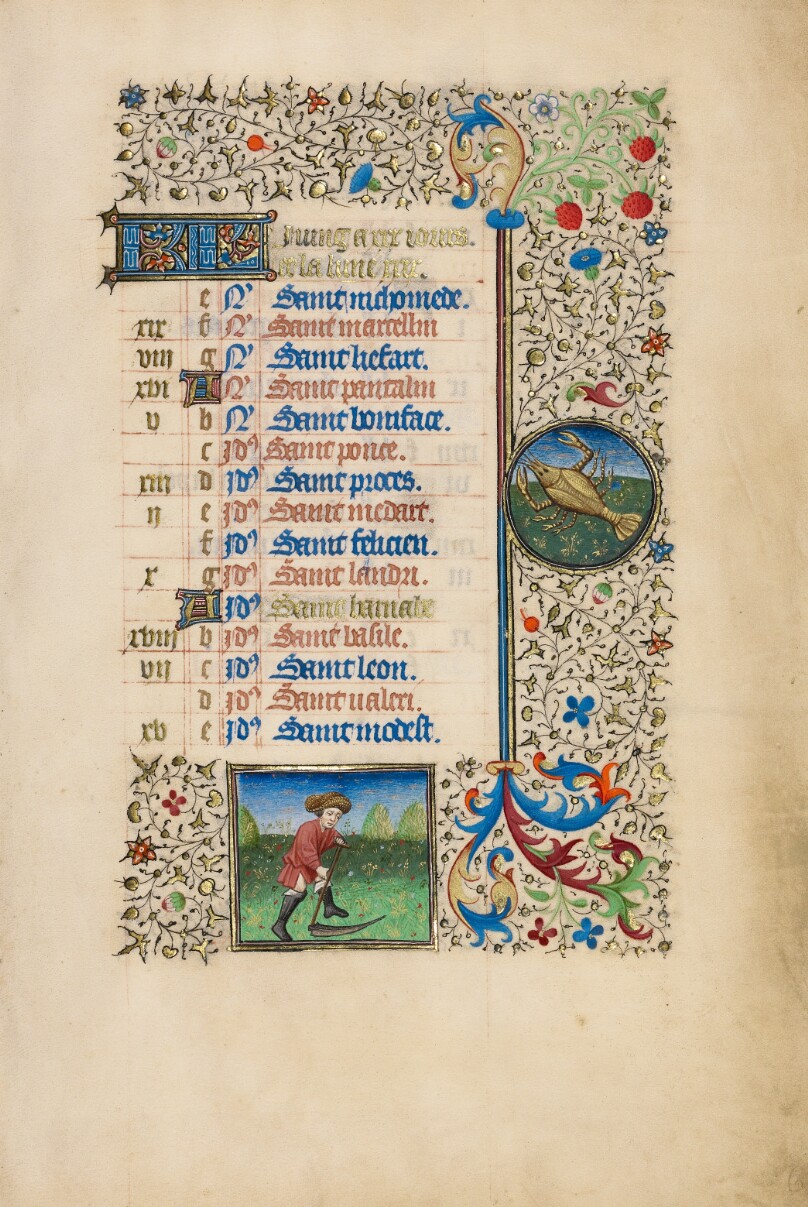 KL Juing a xxx iours.
et la lune xxix.
e N' Saint nichomede.
xix f N' Saint marcellin
viii g N' Saint liefart.
xvi A N' Saint pantalin
v b N' Saint boniface.
c Id' Saint ponce.
xiii d Id' Saint proces.
ii e Id' Saint medart.
f Id' Saint felicien.
x g Id' Saint landri.
A Id' Saint barnabe
xviii b Id' Saint basile.
vii c Id' Saint leon.
d Id' Saint ualeri.
xv e Id' Saint modest.